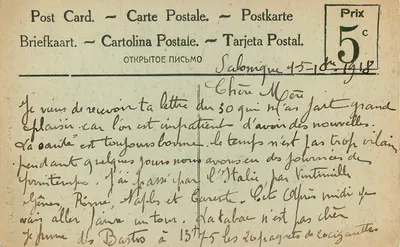 Post Card. – Carte Postale. – Postkarte
Briefkaart. – Cartolina Postale. – Tarjeta Postal.
ОТКРЫТОЕ ПИСЬМО
Prix
5c
Salonique 15-10bre 1918
Chère Mère
Je viens de recevoir ta lettre du 30 qui m'as fait grand
plaisir car l'on est impatient d'avoir des nouvelles.
La santé est toujours bonne. le temps n'est pas trop vilain
pendant quelques jours nous avons eu des journées de
printemps. J'ai passé par l'Italie par Vintimille
Gênes, Rome, Naples et Tarente. Cet Après midi je
vais aller faire un tour. Le tabac n'est pas cher
je fume des Bastos à 13f75 les 20 paquets de cigarettes